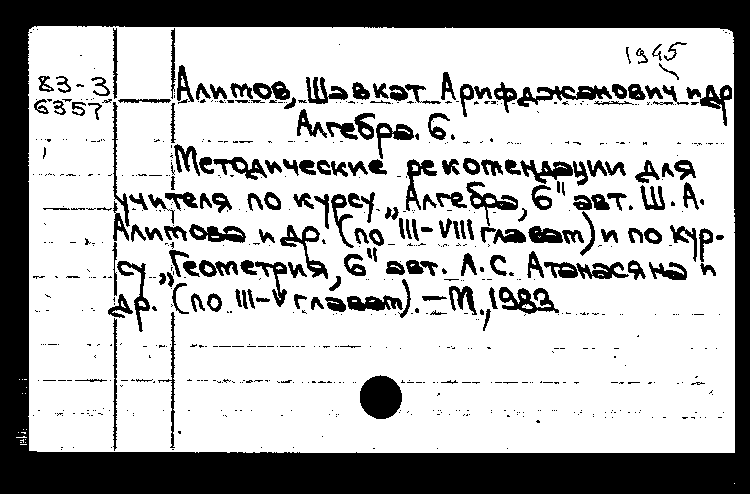 1945
83-3
6357
Алимов, Шавкат Арифджанович и др
Алгебра. 6.
Методические рекомендации для
учителя по курсу „Алгебра, 6" авт. Ш. А.
Алимова и др. (по III-VIII главам) и по кур-
су „Геометрия, 6" авт. Л. С. Атанасяна и
др. (по III-V главам). — М., 1983